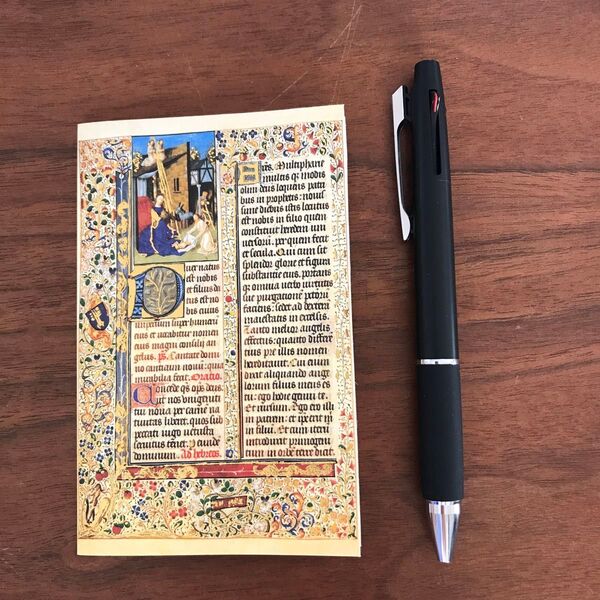 Puer natus
est nobis
et filius da
tus est no
bis cuius
imperium super humeru
eius et vocabitur nomen
eius magni consilij an
gelus. Ps. Cantate domi
no canticum novu: quia
mirabilia fecit. Oratio
Concede qs ops deus
ut nos unigeniti
tui nova per carne na
tivitas liberet. quos sub
peccati iugo vetusta
servitus tenet. p eunde
dominum. Ad hebreos.
Fres. Multipharie
multis qz modis
olim deus loquens patri
bus in prophetis: novis
sime diebus istis locutus
est nobis in filio quem
constituit heredem uni
versorum. per quem fecit
et secula. Qui cum sit
splendor glorie et figura
substantie eius. portans
q omnia verbo virtutis
sue purgatione
faciens: sedet ad dextera
maiestatis in excelsis.
Tanto melior angelis
effectus: quanto differe
cius pre illis nomen
hereditavit. Cui enim
dixit aliquando ange
lorum filius meus es
tu: ego hodie genui te.
Et rursum. Ego ero illi
in patrem et ipse erit mi
in filium. Et cum iteru
introducit primogeni
tum in orbe terre dicit.